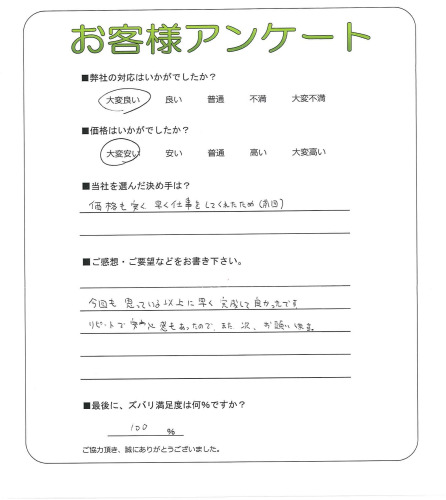 お客様アンケート
■弊社の対応はいかがでしたか?
大変良い 良い 普通 不満 大変不満
■価格はいかがでしたか?
大変安い 安い 普通 高い 大変高い
■当社を選んだ決め手は?
価格も安く 早く仕事をしてくれたため(前回)
■ご感想・ご要望などをお書き下さい。
今回も 思っていた以上に早く 完成して良かったです
リピートで 安心 もあったので、また 次、お願いします。
■最後に、ズバリ満足度は何%ですか?
100 %
ご協力頂き、誠にありがとうございました。